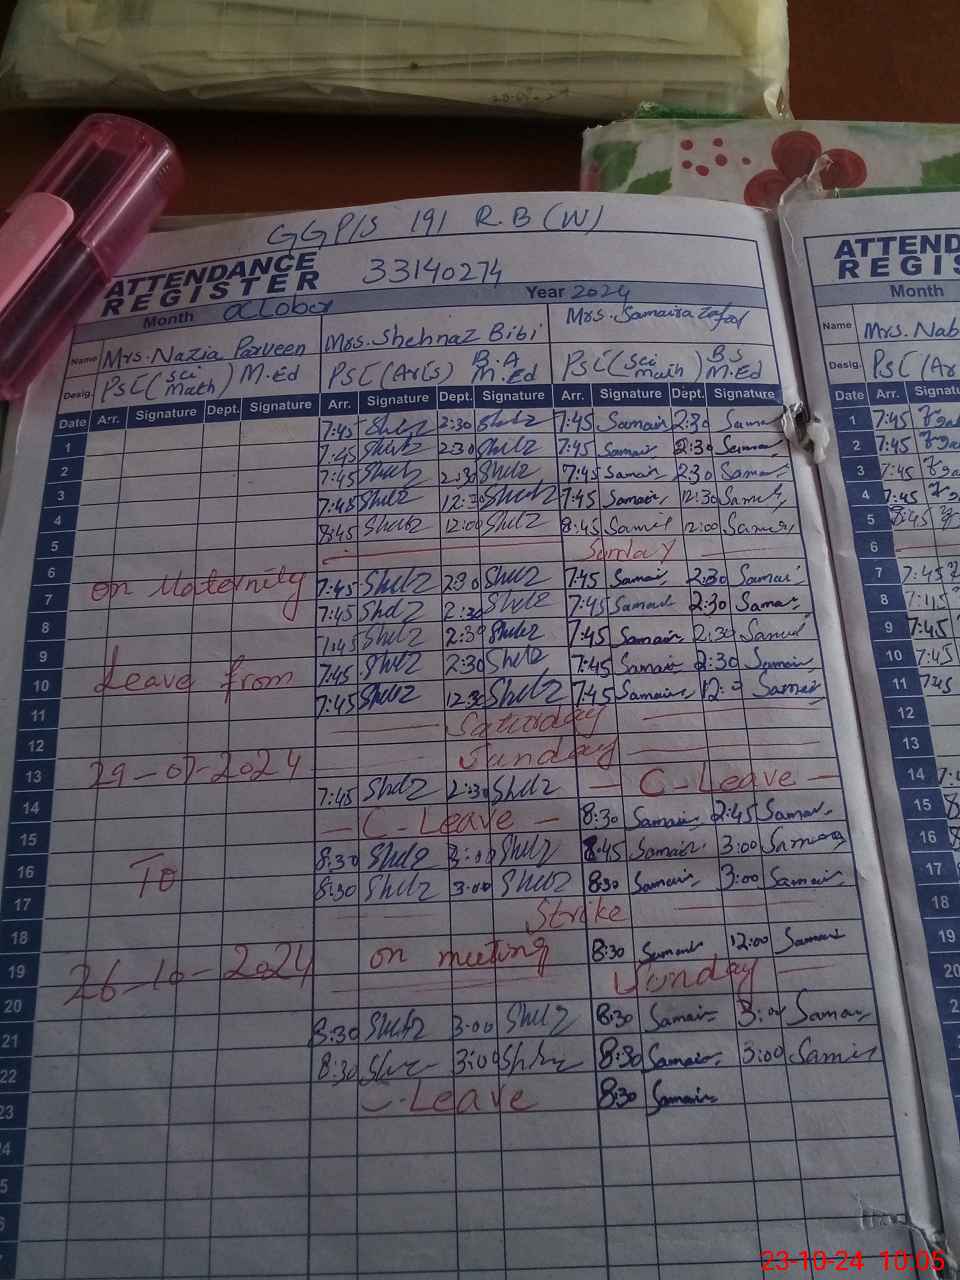 GGP/S 191 R.B (W)
ATTENDANCE REGISTER 33140274
Month October Year 2024
Name Mrs. Nazia Parveen Mrs. Shehnaz Bibi Mrs. Samaira Zafar
Desig. PSC (Sci Math) M.Ed PSC (Arts) B.A M.Ed PSC (Sci math) BS M.Ed
Date Arr. Signature Dept. Signature Arr. Signature Dept. Signature Arr. Signature Dept. Signature
1 7:45 Shelz 2:30 Shelz 7:45 Samair 2:30
2 7:45 Shelz 2:30 Shelz 7:45 Samair 2:30
3 7:45 Shelz 2:30 Shelz 7:45 Samair 2:30
4 7:45 Shelz 12:30 Shelz 7:45 Samair 12:30
5 8:45 Shelz 12:00 Shelz 8:45 12:00
6 Sunday
7 on Maternity 7:45 Shelz 2:30 Shelz 7:45 Samair 2:30 Samair
8 7:45 Shelz 2:30 Shelz 7:45 2:30
9 7:45 Shelz 2:30 Shelz 7:45 Samair 2:30
10 Leave from 7:45 Shelz 2:30 Shelz 7:45 Samair 2:30 Samair
11 7:45 Shelz 12:30 Shelz 7:45 Samair Samair
12 Saturday
13 29-07-2024 Sunday
14 7:45 Shelz 2:30 Shelz C-Leave
15 C-Leave 8:30 Samair 2:45
16 To 8:30 Shelz 3:00 Shelz 8:45 Samair 3:00
17 8:30 Shelz 3:00 Shelz 8:30 Samair 3:00 Samair
18 Strike
19 26-10-2024 on meeting 8:30 12:00
20 Sunday
21 8:30 Shelz 3:00 Shelz 8:30 Samair 3:00
22 8:30 3:00 8:30 Samair 3:00
23 Leave 8:30 Samair
ATTEND
REGIS
Month
Name Mrs. Nab
Desig. PSC (Ar
Date Arr. Signatu
1 7:45
2 7:45
3 7:45
4 7:45
5 8:45
6
7 7:45
8
9 7:45
10 7:45
11 7:45
12
13
14
15
16
17
18
19
20
21
22
23-10-24 10:05